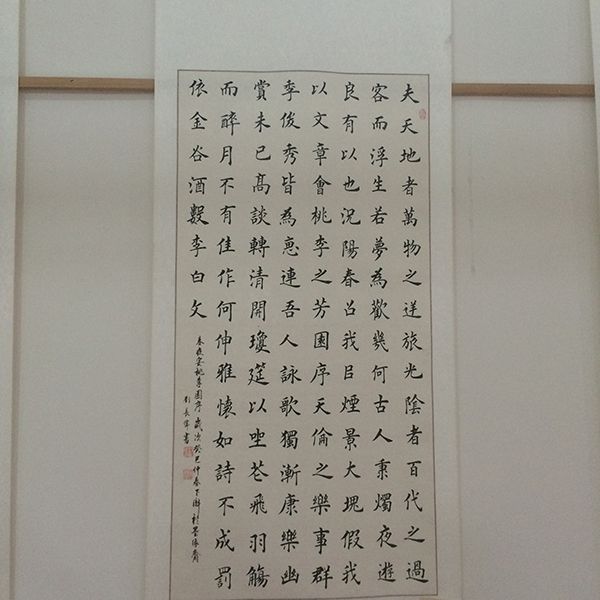 夫天地者萬物之逆旅光陰者百代之過
客而浮生若夢為歡幾何古人秉燭夜遊
良有以也況陽春召我㠯煙景大塊假我
以文章會桃李之芳園序天倫之樂事群
季俊秀皆為惠連吾人詠歌獨漸康樂幽
賞未已高談轉清開瓊筵以坐花飛羽觴
而醉月不有佳作何伸雅懷如詩不成罰
依金谷酒數李白文
春夜宴桃李園序歲次癸巳仲春下浣